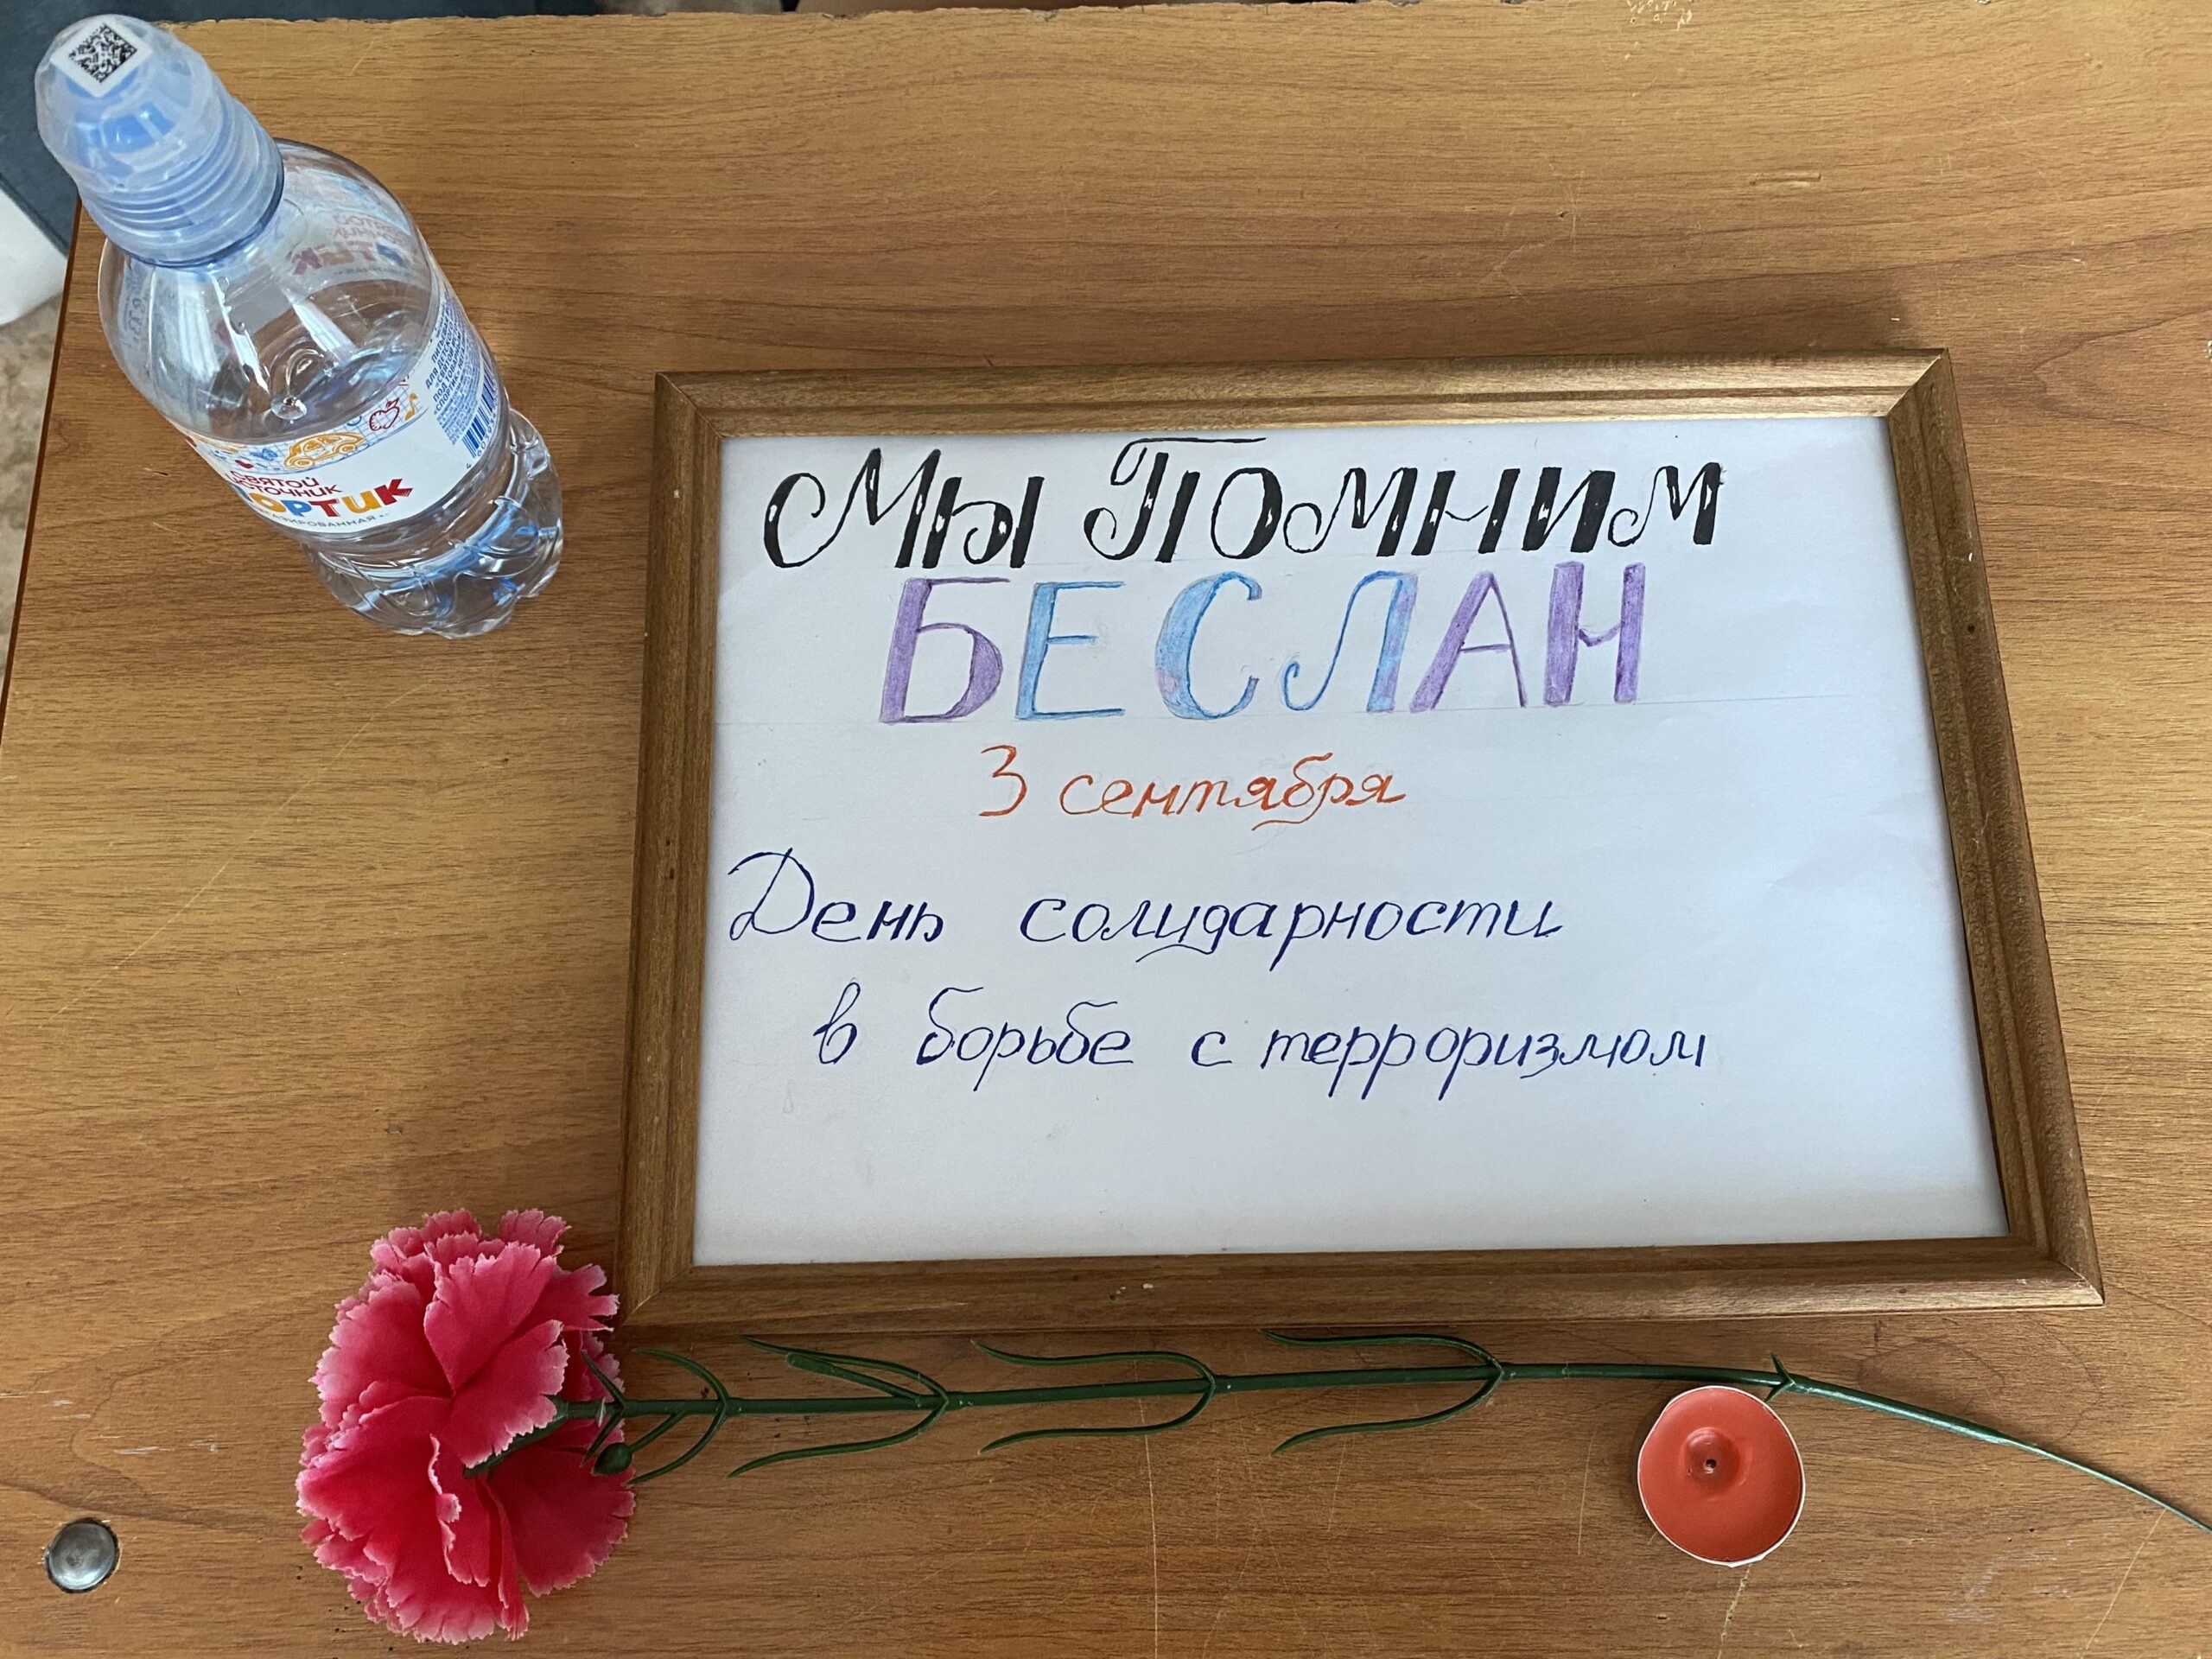 Мы Помним
БЕСЛАН
3 сентября
День солидарности
в борьбе с терроризмом
СВЯТОЙ
ИСТОЧНИК